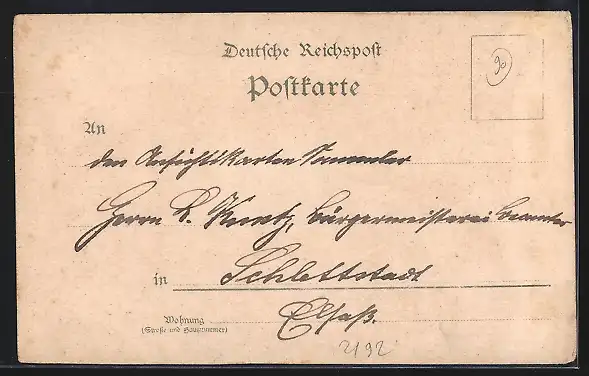 Deutsche Reichspost
Postkarte
90
An
den Ansichtskarten Sammler
Herrn L. Kuntz, Bürgermeisterei Beamter
in Schlettstadt
Wohnung Elsaß.
(Straße und Hausnummer)
2192